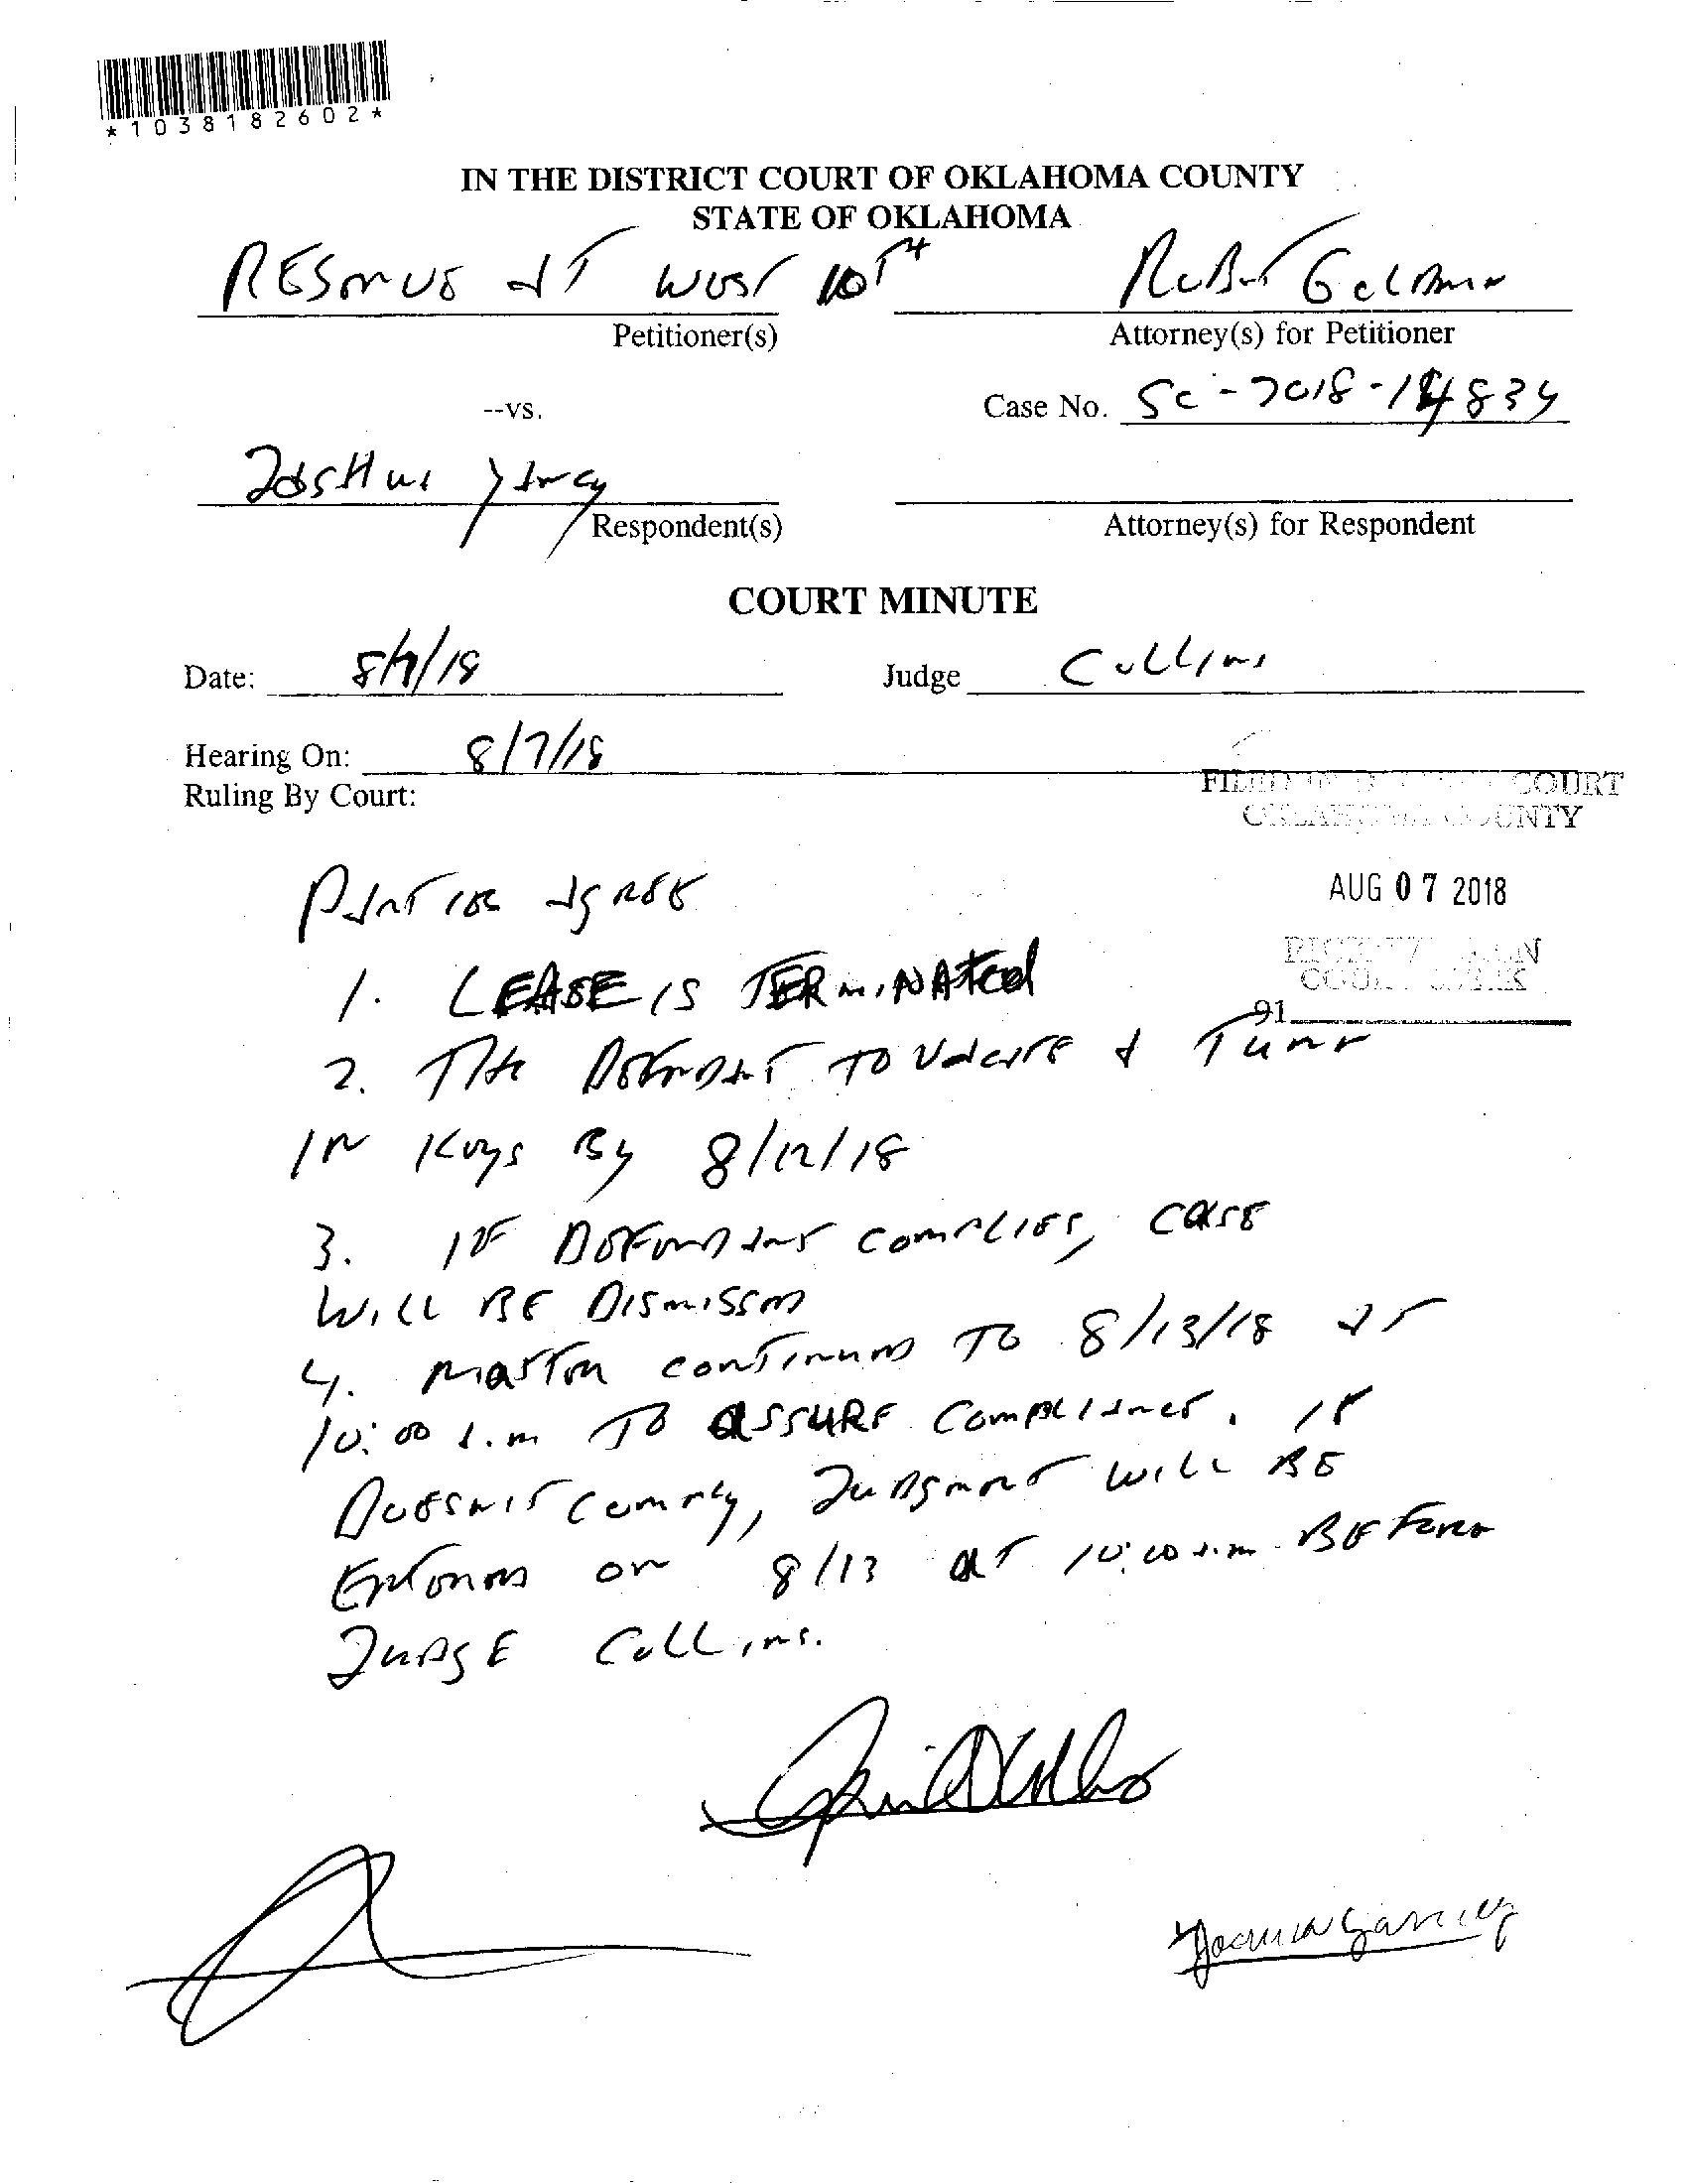 *1038182602*
IN THE DISTRICT COURT OF OKLAHOMA COUNTY
STATE OF OKLAHOMA
RESERVE AT WEST 10TH
Petitioner(s)
Attorney(s) for Petitioner
--vs.
Case No. SC-2018-14834
JOSHUA
Respondent(s)
Attorney(s) for Respondent
COURT MINUTE
Date: 8/7/18
Judge COLLINS
Hearing On: 8/7/18
Ruling By Court:
FILED IN DISTRICT COURT
OKLAHOMA COUNTY
PARTIES AGREE
AUG 07 2018
RICK WARREN
COURT CLERK
1. LEASE IS TERMINATED
91
2. THE DEFENDANT TO VACATE & TURN
IN KEYS BY 8/12/18
3. IF DEFENDANT COMPLIES, CASE
WILL BE DISMISSED
4. MATTER CONTINUED TO 8/13/18 AT
10:00 A.M TO ASSURE COMPLIANCE. IF
DOESN'T COMPLY, JUDGMENT WILL BE
ENTERED ON 8/13 AT 10:00 A.M. BEFORE
JUDGE COLLINS.